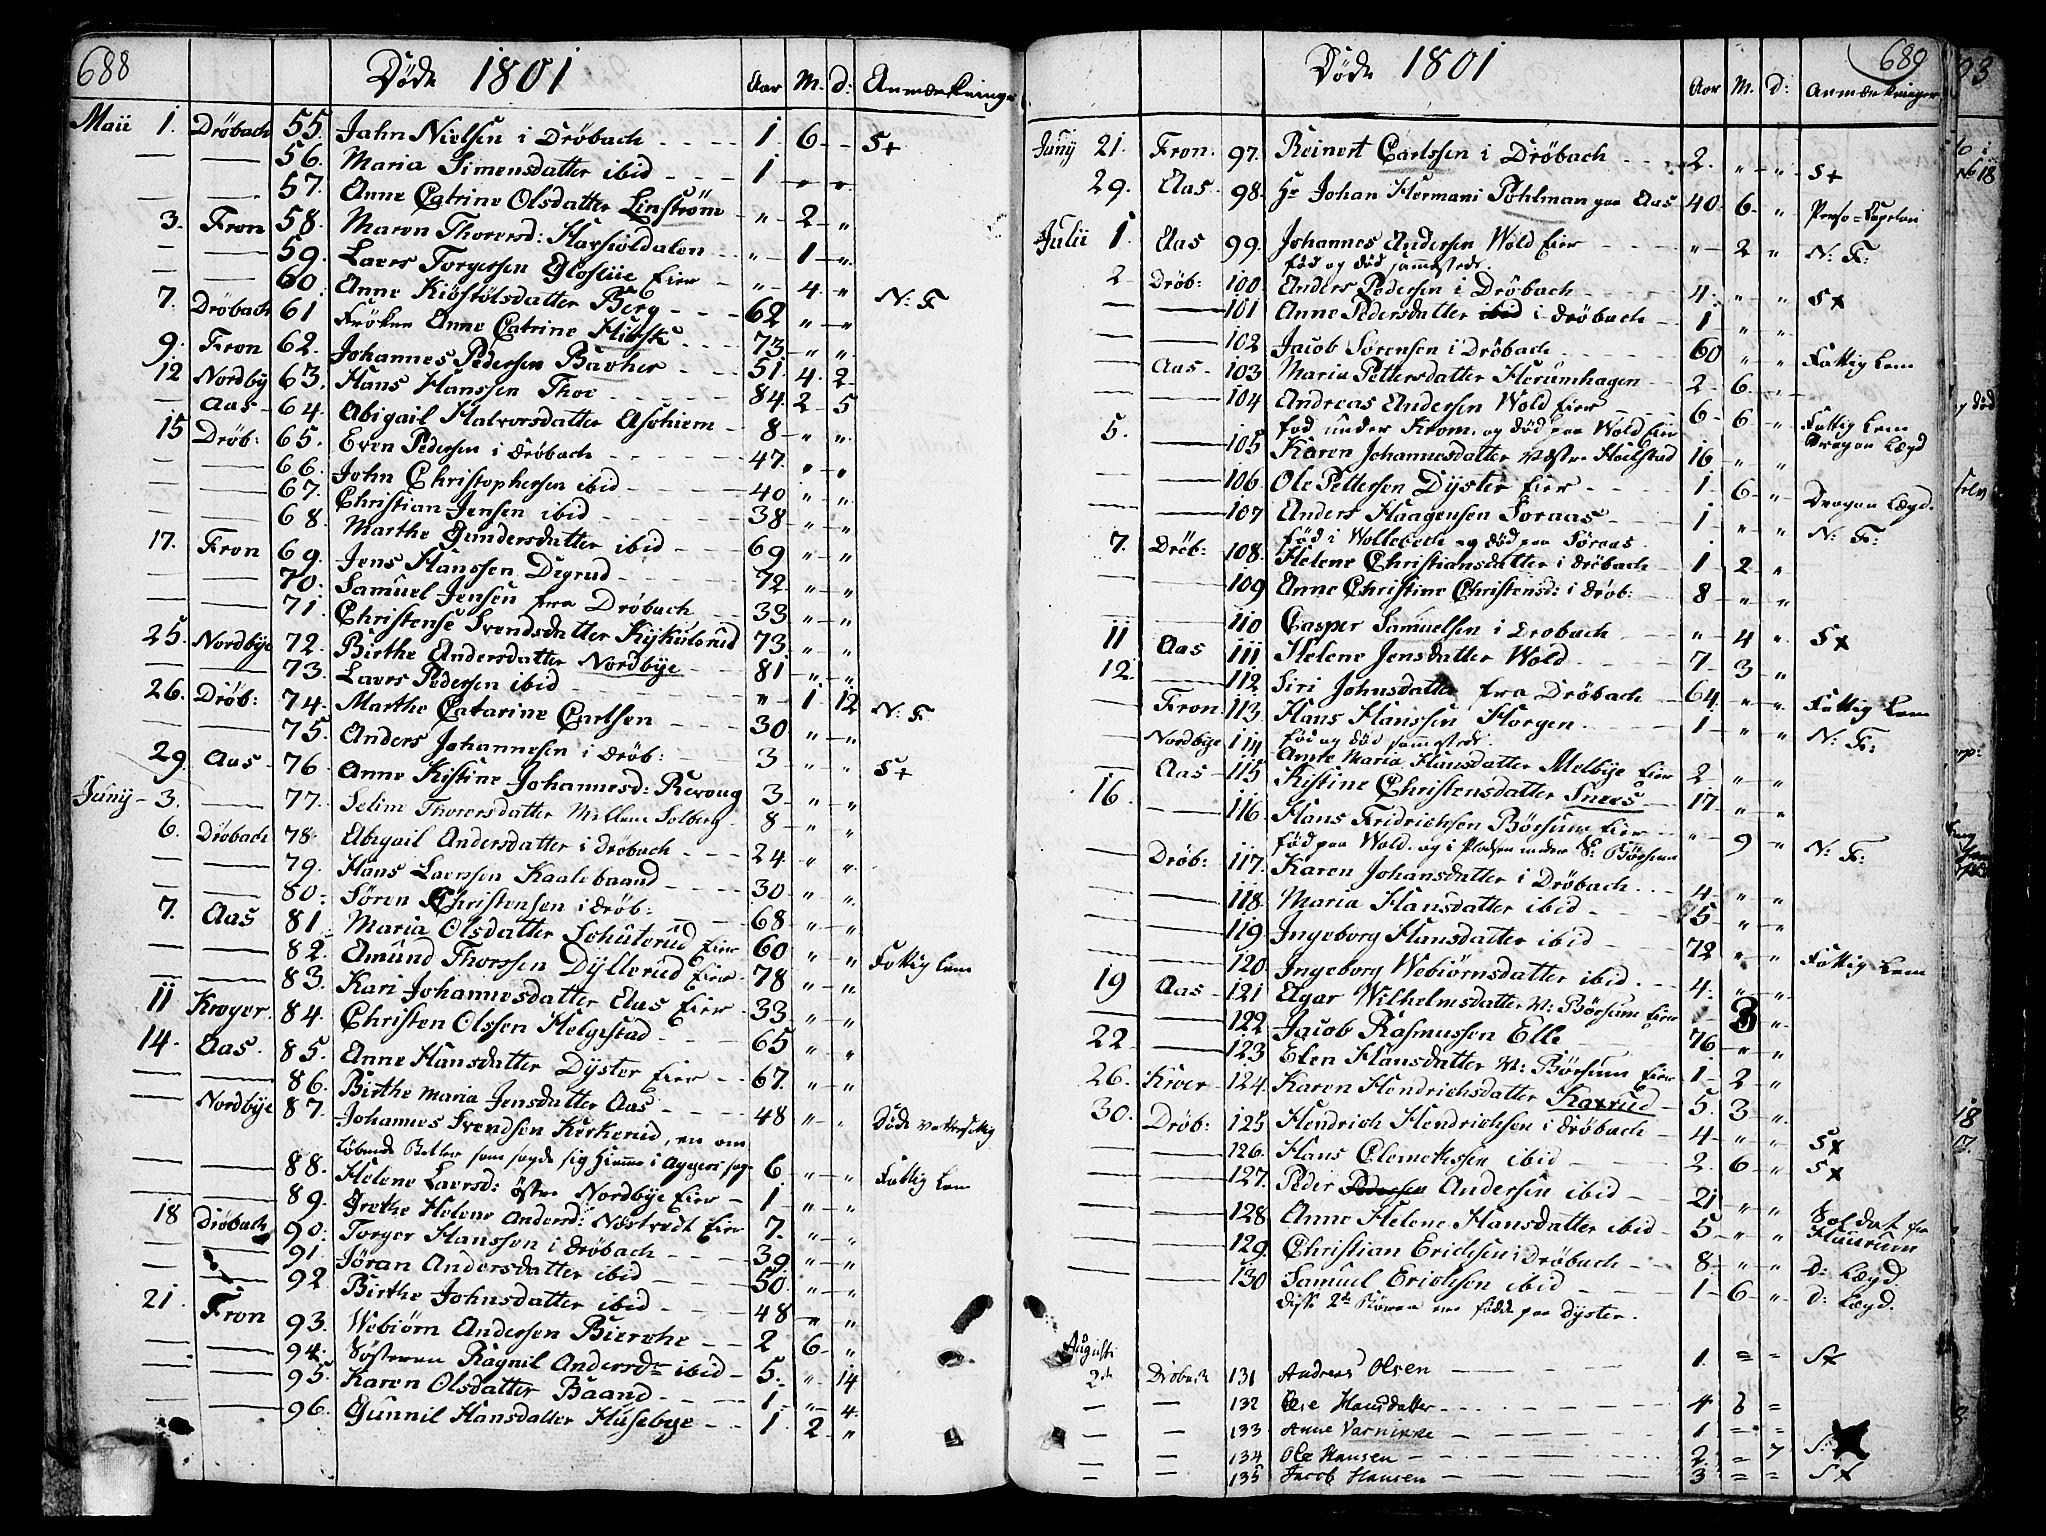 688
Döde 1801 Aar M. d: Anmærkninger
Maii 1. Dröbach 55. Jahn Nielsen i Dröbach 1. 6 S+
56. Maria Simensdatter ibid 1 " "
57. Anne Catrine Olsdatter Linström " 2 "
3. Fron 58. Maren Thorersd: Harsioldalen " 1 "
59. Laers Torgersen Egloslüe Eier " 4 "
60. Anne Kiöstolsdatter Berg 62 " " N: F
7. Dröbach 61 Fröken Anne Catrine Husk 73 " "
9. Fron 62. Johannes Pedersen Bacher 51. 4. 2
12 Nordby 63. Hans Hanssen Thoe 84 2 5
Aas 64. Abigail Halvorsdatter Asohiem 8 " "
15 Dröb: 65. Even Pedersen i dröbach 47. " "
66. John Christophersen ibid 40 " "
67. Christian Jensen ibid 38 " "
68. Marthe Gundersdatter ibid 69 " "
17. Fron 69. Jens Hanssen Degrud 72 " "
70. Samuel Jensen fra Dröbach 33 " "
71. Christense Svendsdatter Kykulsrud 73 " "
25. Nordbye 72. Birthe Andersdatter Nordbye 81 " "
73. Laers Pedersen ibid " 1 12
26. Dröb: 74. Marthe Catarine Carlsen 30 " " N: F
75. Anders Johannesen i dröb: 3 " "
29. Aas 76 Anne Kistine Johannesd: Revoug 3 " " S+
Junij 3. 77. Selim Thorersdatter Mellem Solberg 8 " "
6. Dröbach 78. Abigail Andersdatter i dröbach 24 " "
79. Hans Laerssen Kaalebaand 30 " "
80. Sören Christensen i dröb: 68 " "
7. Aas 81 Maria Olsdatter Schuterud Eier 60 " "
82. Amund Thorssen Dyllerud Eier 78 " " Fattig Lem
83. Kari Johannesdatter Aas Eier 33 " "
11 Kroger. 84. Christen Olssen Helgestad 65 " "
14. Aas. 85. Anne Hansdatter Dyster Eier 67. " "
86. Birthe Maria Jensdatter Aas 48 " "
Nordbye 87. Johannes Svendsen Kerkerud, en om Döde
löbende Betler som sagde sig hieme i Aggers sogn 6 " "
88. Helene Laersd: östre Nordbye Eier 1 " " Fattig Lem
89. Grethe Helene Andersd: Nöstvedt Eier 7. " "
18 Dröbach 90. Torger Hanssen i dröbach 39 " "
91. Jöran Andersdatter ibid 50 " "
92 Birthe Johnsdatter ibid 48 " "
21. Fron 93. Webiörn Andersen Bierche 2 6 "
94. Sösteren Ragnil Andersdr ibid 5. " 14
95. Karen Olsdatter Baand 1. " 4.
96. Gunnil Hansdatter Husebye 1 2 "
689
Döde 1801 Aar M. d: Anmærkninger
Junij 21. Fron. 97. Reinert Carlssen i Dröbach 2. " " S+
29. Aas 98. Hr Johan Hermani Pohlman paa Aas 40 6 " Perso=Capelan
Julii 1. Aas 99. Johannes Andersen Wold Eier " 2 " N: F:
fød og død sammestæds.
2 Dröb: 100. Anders Pedersen i Dröbach 4. " " S+
101 Anne Pedersdatter ibid i dröbach 1 " "
102 Jacob Sörensen i Dröbach 60 " " Fattig Lem
Aas 103 Maria Pettersdatter Herumhagen 2 6 "
104 Andreas Andersen Wold Eier 6 6 " Fattig Lem
fød under Krom. og død paa Wold Eier Dragon Lægd
5. 105 Karen Johannesdatter Vestre Holstad 16 " "
106 Ole Pettersen Dyster Eier 1 6 " Dragon Lægd.
107 Anders Haagensen Soraas 1 " " N: F:
fød i Wollebech og død paa Söraas.
7. Dröb: 108. Helene Christiansdatter i dröbach 1 2 "
109 Anne Christine Christensd: i dröb: 8 " "
110 Casper Samuelsen i Drobach " 4 " S+
11 Aas 111 Helene Jensdatter Wold 7 3 "
12. 112. Siri Johnsdatter fra Dröbach 64. " " Fattig Lem
Fron 113. Hans Hanssen Horgen 1 " " N: F:
fød og død sammestæds.
Nordbye 114 Anne Maria Hansdatter Melbye Eier 2 " "
Aas 115 Kistine Christensdatter Snees 17 " "
16. 116. Hans Fridrichsen Börsum Eier " 9 " N: F:
fød paa Wold. og i Pladsen under S: Börsum
Dröb: 117. Karen Johansdatter i Dröbach 4 " "
118. Maria Hansdatter ibid 5 " "
119. Ingeborg Hansdatter ibid 72 " " Fattig Lem
120. Ingeborg Webiörnsdatter ibid. 4. " "
19 Aas 121 Elgar Wilhelmsdatter N: Börsum Eier 3 "
122 Jacob Rasmussen Elle 76 " "
22 123 Elen Hansdatter N: Börsum Eier 1 2 "
26. Kroer 124. Karen Hendrichsdatter Kaxrud 5. 3 "
30. Dröb: 125 Hendrich Hendrichsen i dröbach 4 " " S+
126. Hans Clemetssen ibid 2. 6 " S+
127. Peder Pedersen Andersen ibid 21 " " Soldat fra
128 Anne Helene Hansdatter ibid 5 " " Huusum
129. Christian Erichsen i dröbach 8. " " D: Lægd.
130 Samuel Erichsen ibid 1 6 " D: Lægd.
disse 2de Börn ere födde paa Dyster.
Augusti
2de Dröbach 131 Andreas Olsen 1. = = S+
132 Else Hansdatter 4 8 =
133 Anne Varnikke 1 = =
134 Ole Hansen 2 = 7 S:
135 Jacob Hansen 3 = = S+